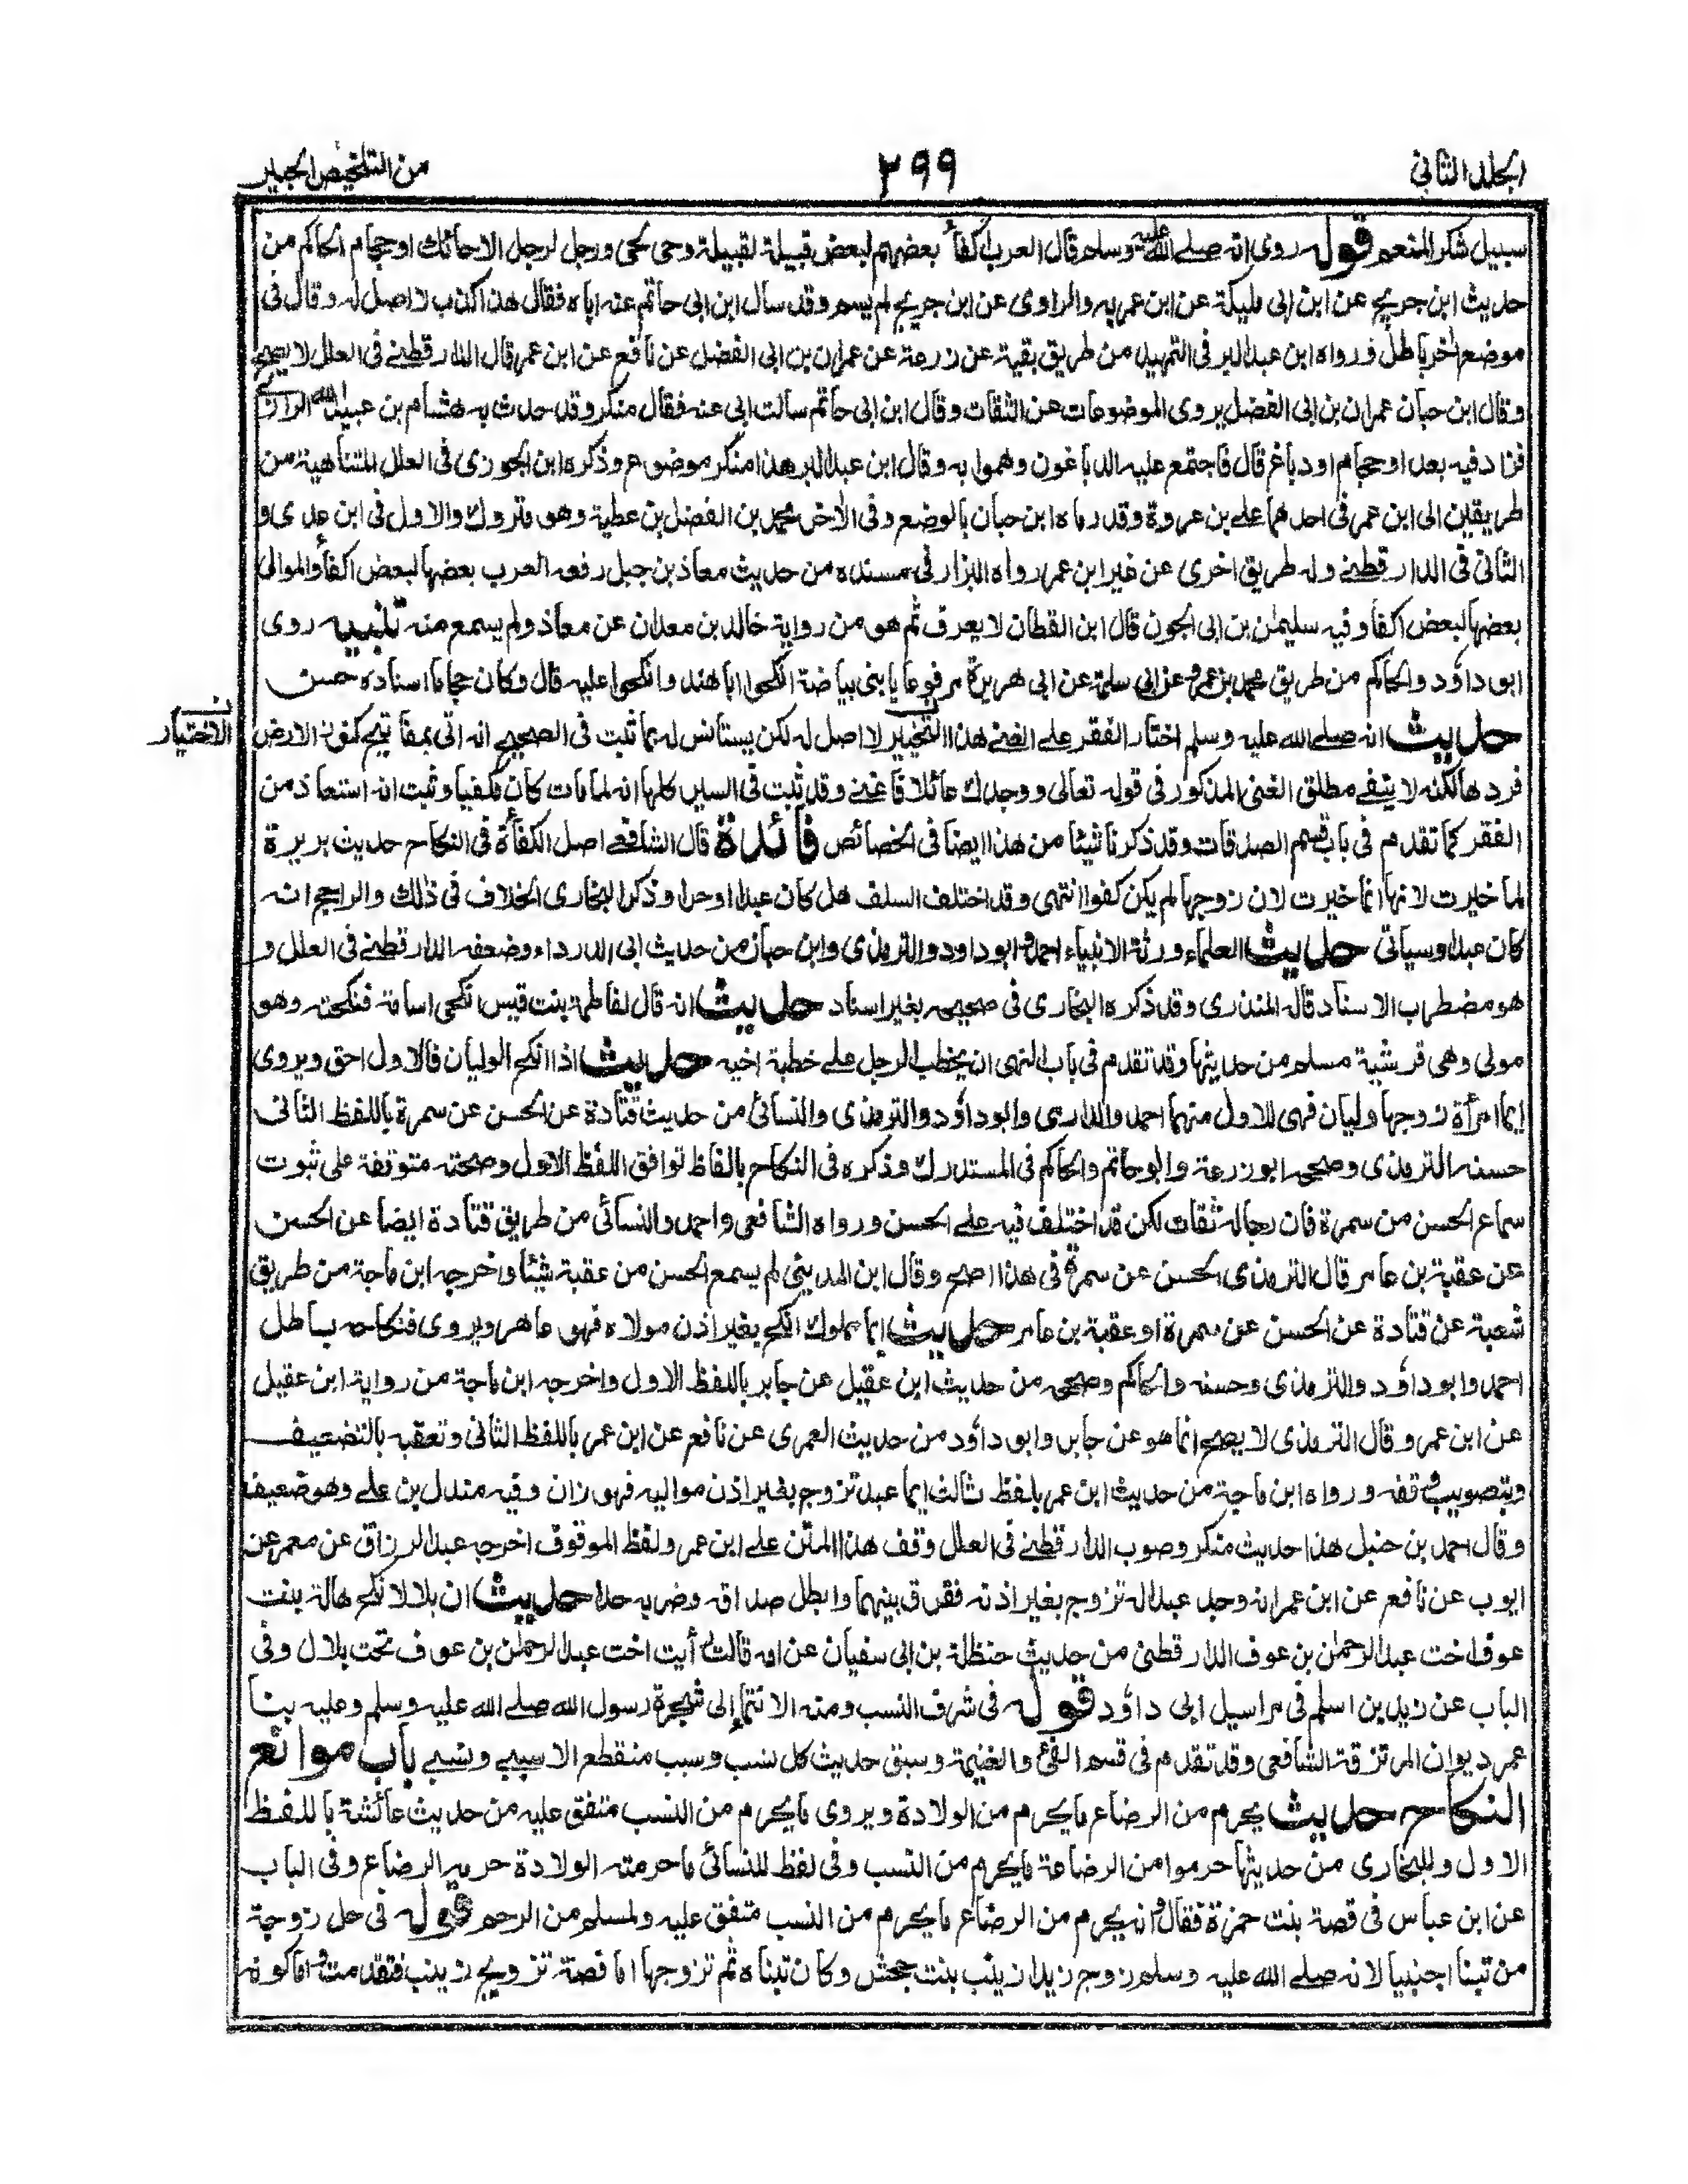 المجلد الثاني
٢٩٩
من التلخيص الحبير
سبيل شكر المنعم قوله روى انه صلى الله عليه وسلم قال العرب اكفاء بعضهم لبعض قبيلة لقبيلة وحي لحي ورجل لرجل الا حائك او حجام الحاكم من
حديث ابن جريج عن ابن ابي مليكة عن ابن عمر به والراوي عن ابن جريج لم يسم وقد سأل ابن ابي حاتم عنه اباه فقال هذا كذب لا اصل له وقال في
موضع اخر باطل ورواه ابن عبد البر في التمهيد من طريق بقية عن زرعة عن عمران بن ابي الفضل عن نافع عن ابن عمر قال الدارقطني في العلل لا يصح
وقال ابن حبان عمران بن ابي الفضل يروي الموضوعات عن الثقات وقال ابن ابي حاتم سألت ابي عنه فقال منكر وقد حدث به هشام بن عبيد الله الرازي
فزاد فيه بعد او حجام او دباغ قال فاجتمع عليه الدباغون وهموا به وقال ابن عبد البر هذا منكر موضوع وذكره ابن الجوزي في العلل المتناهية من
طريقين الى ابن عمر في احدهما علي بن عروة وقد رماه ابن حبان بالوضع وفي الاخر محمد بن الفضل بن عطية وهو متروك والاول في ابن عدي و
الثاني في الدارقطني وله طريق اخرى عن غير ابن عمر رواه البزار في مسنده من حديث معاذ بن جبل رفعه العرب بعضها لبعض اكفأ والموالي
بعضها لبعض اكفأ وفيه سليمان بن ابي الجون قال ابن القطان لا يعرف ثم هو من رواية خالد بن معدان عن معاذ ولم يسمع منه تنبيه روى
ابو داود والحاكم من طريق محمد بن عمرو عن ابي سلمة عن ابي هريرة مرفوعا يا بني بياضة انكحوا ابا هند وانكحوا عليه قال وكان حجاما اسناده حسن
حديث انه صلى الله عليه وسلم اختار الفقر على الغنى هذا التخيير لا اصل له لكن يستأنس له بما ثبت في الصحيح انه اتي بمفاتيح كنوز الارض
الاختيار
فردها لكنه لا ينفي مطلق الغنى المذكور في قوله تعالى ووجدك عائلا فاغنى وقد ثبت في السير كلها انه لما مات كان مكفيا وثبت انه استعاذ من
الفقر كما تقدم في باب قسم الصدقات وقد ذكرنا شيئا من هذا ايضا في الخصائص فائدة قال الشافعي اصل الكفأة في النكاح حديث بريرة
لما خيرت لانها انما خيرت لان زوجها لم يكن كفوا انتهى وقد اختلف السلف هل كان عبدا او حرا وذكر البخاري الخلاف في ذلك والراجح انه
كان عبدا وسياتي حديث العلماء ورثة الانبياء احمد وابو داود والترمذي وابن حبان من حديث ابي الدرداء وضعفه الدارقطني في العلل و
هو مضطرب الاسناد قاله المنذري وقد ذكره البخاري في صحيحه بغير اسناد حديث انه قال لفاطمة بنت قيس انكحي اسامة فنكحته وهو
مولى وهي قرشية مسلم من حديثها وقد تقدم في باب النهي ان يخطب الرجل على خطبة اخيه حديث اذا انكح الوليان فالاول احق ويروى
ايما امرأة زوجها وليان فهي للاول منهما احمد والدارمي وابو داود والترمذي والنسائي من حديث قتادة عن الحسن عن سمرة باللفظ الثاني
حسنه الترمذي وصححه ابو زرعة وابو حاتم والحاكم في المستدرك وذكره في النكاح بالفاظ توافق اللفظ الاول وصحته متوقفة على ثبوت
سماع الحسن من سمرة فان رجاله ثقات لكن قد اختلف فيه على الحسن ورواه الشافعي واحمد والنسائي من طريق قتادة ايضا عن الحسن
عن عقبة بن عامر قال الترمذي الحسن عن سمرة في هذا اصح وقال ابن المديني لم يسمع الحسن من عقبة شيئا واخرجه ابن ماجة من طريق
شعبة عن قتادة عن الحسن عن سمرة او عقبة بن عامر حديث ايما مملوك انكح بغير اذن مولاه فهو عاهر ويروى فنكاحه باطل
احمد وابو داود والترمذي وحسنه والحاكم وصححه من حديث ابن عقيل عن جابر باللفظ الاول واخرجه ابن ماجة من رواية ابن عقيل
عن ابن عمر وقال الترمذي لا يصح انما هو عن جابر وابو داود من حديث العمري عن نافع عن ابن عمر باللفظ الثاني وتعقبه بالتضعيف
وبتصويب وقفه ورواه ابن ماجة من حديث ابن عمر بلفظ ثالث ايما عبد تزوج بغير اذن مواليه فهو زان وفيه مندل بن علي وهو ضعيف
وقال احمد بن حنبل هذا حديث منكر وصوب الدارقطني في العلل وقف هذا المتن على ابن عمر ولفظ الموقوف اخرجه عبد الرزاق عن معمر عن
ايوب عن نافع عن ابن عمر انه وجد عبدا له تزوج بغير اذنه ففرق بينهما وابطل صداقه وضربه حدا حديث ان بلالا نكح هالة بنت
عوف اخت عبد الرحمن بن عوف الدارقطني من حديث حنظلة بن ابي سفيان عن امه قالت رأيت اخت عبد الرحمن بن عوف تحت بلال وفي
الباب عن زيد بن اسلم في مراسيل ابي داود قوله في شرف النسب ومنه الانتماء الى شجرة رسول الله صلى الله عليه وسلم وعليه بنا
عمر ديوان المرتزقة الشافعي وقد تقدم في قسم الفئ والغنيمة وسبق حديث كل نسب وسبب منقطع الا سببي ونسبي باب موانع
النكاح حديث يحرم من الرضاع ما يحرم من الولادة ويروى ما يحرم من النسب متفق عليه من حديث عائشة باللفظ
الاول وللبخاري من حديثها حرموا من الرضاعة ما يحرم من النسب وفي لفظ للنسائي ما حرمته الولادة حرمه الرضاع وفي الباب
عن ابن عباس في قصة بنت حمزة فقال وانه يحرم من الرضاع ما يحرم من النسب متفق عليه ولمسلم من الرحم قوله في حل زوجة
من تبنا اجنبيا لانه صلى الله عليه وسلم زوج زيدا زينب بنت جحش وكان تبناه ثم تزوجها اما قصة تزويج زينب فتقدمت واما كونه